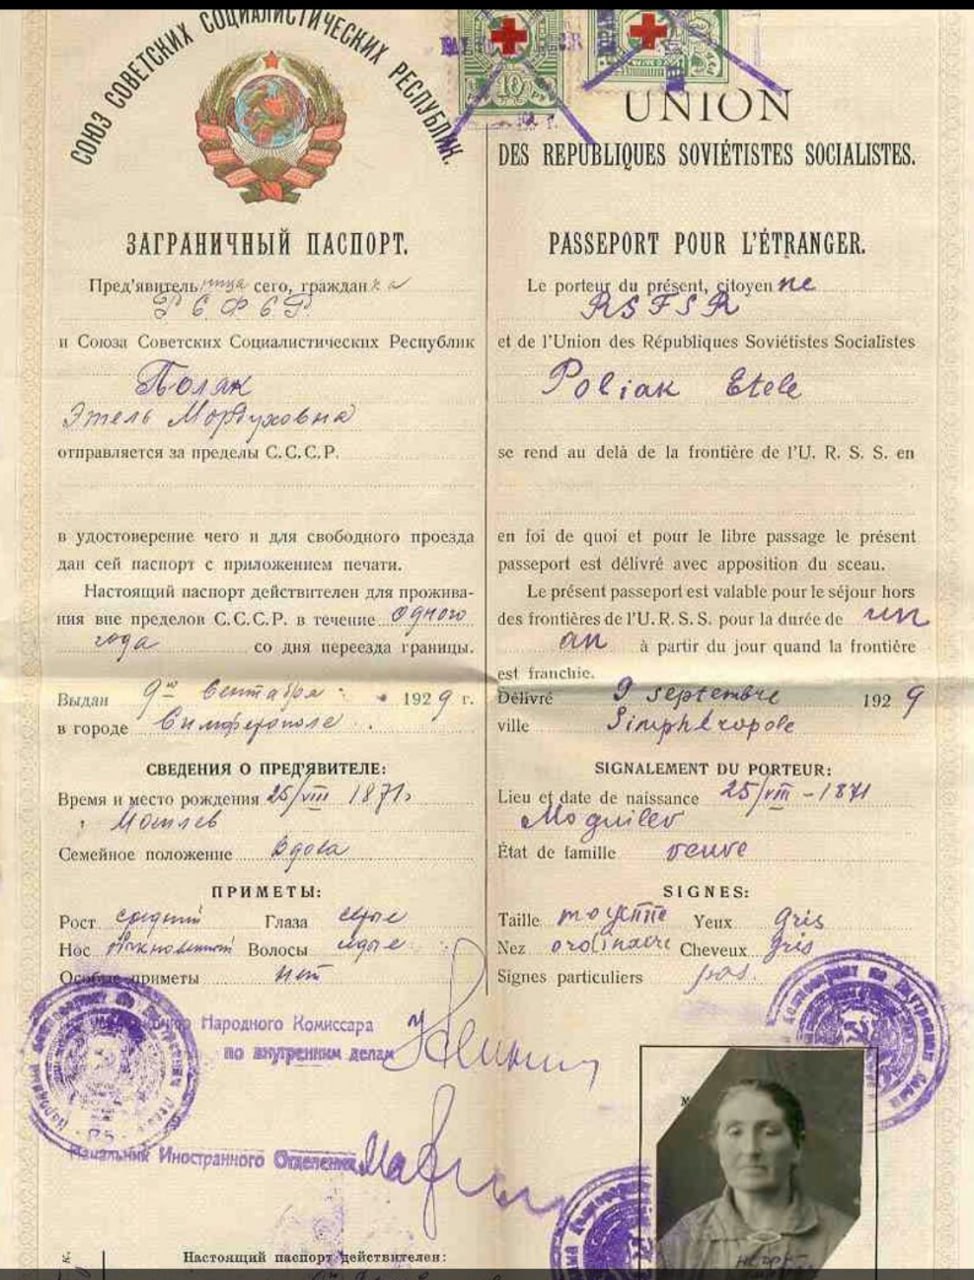 СОЮЗ СОВЕТСКИХ СОЦИАЛИСТИЧЕСКИХ РЕСПУБЛИК.
ЗАГРАНИЧНЫЙ ПАСПОРТ.
Пред'явительница сего, гражданка
Р С Ф С Р
и Союза Советских Социалистических Республик
Поляк
Этель Мордуховна
отправляется за пределы С.С.С.Р.
в удостоверение чего и для свободного проезда
дан сей паспорт с приложением печати.
Настоящий паспорт действителен для прожива-
ния вне пределов С.С.С.Р. в течение одного
года со дня переезда границы.
Выдан 9го Сентября 1929 г.
в городе Симферополе
СВЕДЕНИЯ О ПРЕД'ЯВИТЕЛЕ:
Время и место рождения 25/VIII 1871
Могилев
Семейное положение Вдова
ПРИМЕТЫ:
Рост средний Глаза серые
Нос Волосы седые
Особые приметы нет
Народного Комиссара
по внутренним делам
Начальник Иностранного Отделения
Настоящий паспорт действителен:
10
UNION
DES REPUBLIQUES SOVIÉTISTES SOCIALISTES.
PASSEPORT POUR L'ÉTRANGER.
Le porteur du présent, citoyenne
RSFSR
et de l'Union des Républiques Soviétistes Socialistes
Poliak Etele
se rend au delà de la frontière de l'U. R. S. S. en
en foi de quoi et pour le libre passage le présent
passeport est délivré avec apposition du sceau.
Le présent passeport est valable pour le séjour hors
des frontières de l'U.R.S.S. pour la durée de un
an à partir du jour quand la frontière
est franchie.
Délivré 9 septembre 1929
ville Simphéropole
SIGNALEMENT DU PORTEUR:
Lieu et date de naissance 25/VIII - 1871
Moguilev
État de famille veuve
SIGNES:
Taille moyenne Yeux gris
Nez ordinaire Cheveux gris
Signes particuliers pas.